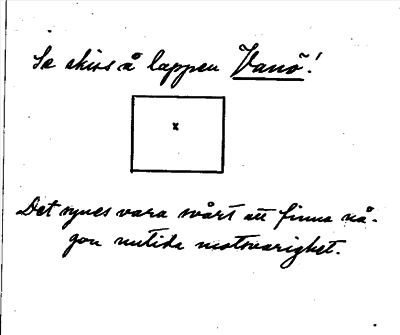 Se skiss å lappen Vanö!
x
Det synes vara svårt att finna nå-
gon nutida motsvarighet.